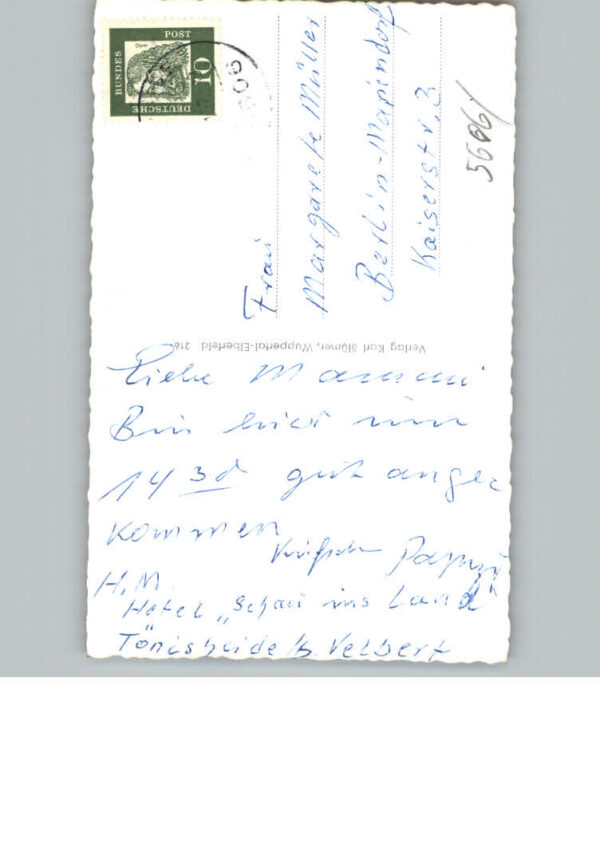 DEUTSCHE
BUNDES
POST
Dürer
10
Frau
Margarete Müller
Berlin-Mariendorf
Kaiserstr. 3
5606/
Verlag Karl Blömer, Wuppertal-Elberfeld 216
Liebe Mammi
Bin hier um
14 30 gut ange
kommen
Pappi
H. M.
Hotel „Schau ins Land"
Tönisheide b. Velbert